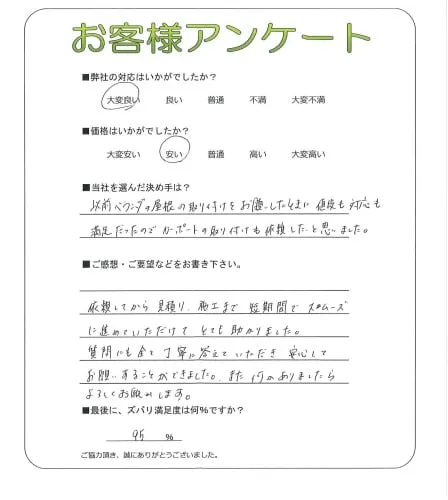 お客様アンケート
■弊社の対応はいかがでしたか？
大変良い 良い 普通 不満 大変不満
■価格はいかがでしたか？
大変安い 安い 普通 高い 大変高い
■当社を選んだ決め手は？
以前ベランダの屋根の取り付けをお願いしたときに 値段も対応も
満足だったのでカーポートの取り付けも依頼したと思いました。
■ご感想・ご要望などをお書き下さい。
依頼してから見積り、施工まで 短期間でスムーズ
に進めていただけて とても助かりました。
質問にも全て丁寧に答えていただき 安心して
お願いすることができました。また何かありましたら
よろしくお願いします。
■最後に、ズバリ満足度は何%ですか？
95 %
ご協力頂き、誠にありがとうございました。